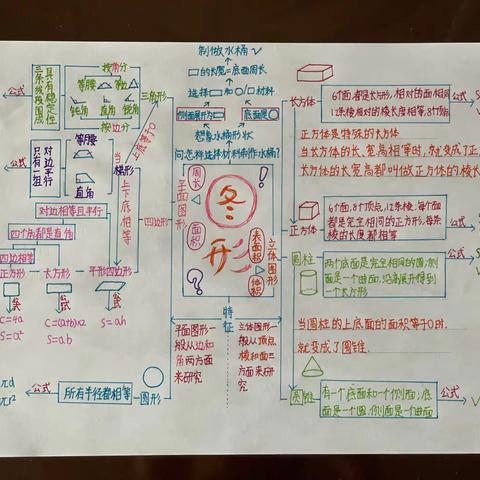 制做水桶√
□的长宽=底面周长
选择□和○/□材料
侧面展开为□
底面是○
想象水桶形状
问怎样选择材料制作水桶?
周长
面积
平面图形
表面积
体积
立体图形
特征
平面图形一
般从边和
角两方面
来研究
立体图形一
般从顶点,
棱和面三
方面来研
究
公式
具有稳定性
三条线段围成
按角分
等腰
钝角
直角
锐角
按边分
三角形
上底等于0
公式
对边平行
只有一组
等腰
直角
梯形
当上下底相等
四边形
对边相等且平行
四个角都是直角
四边相等
正方形
长方形
平行四边形
公式
公式
公式
C=4a
S=a²
C=(a+b)×2
S=ab
S=ah
πd
πr²
公式
所有半径都相等
圆形
长方体
6个面,都是长方形,相对的面相同
12条棱,相对的棱长度相等,8个顶点
公式
S
V
正方体是特殊的长方体
当长方体的长、宽、高相等时,就变成了正
长方体的长、宽、高都叫做正方体的棱长
正方体
6个面,8个顶点,12条棱,每个面
都是完全相同的正方形,每条
棱的长度都相等
公式
S
V
圆柱
两个底面是完全相同的圆,侧
面是一个曲面,沿高展开得到
一个长方形
公式
S
V
当圆柱的上底面的面积等于0时,
就变成了圆锥.
圆锥
有一个底面和一个侧面,底
面是一个圆,侧面是一个曲面
公式
V